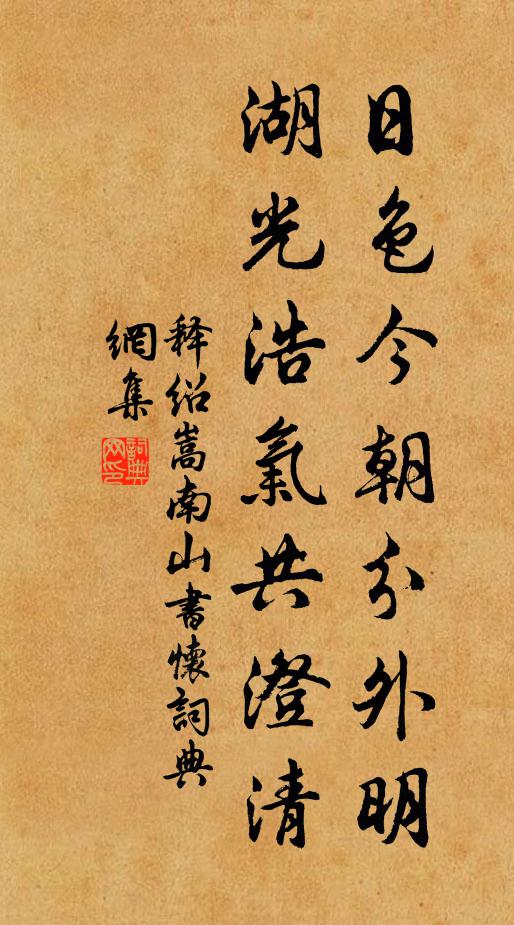 日色今朝分外明
湖光浩氣共澄清
释绍嵩南山書懷詞典
網集
詞典
网印